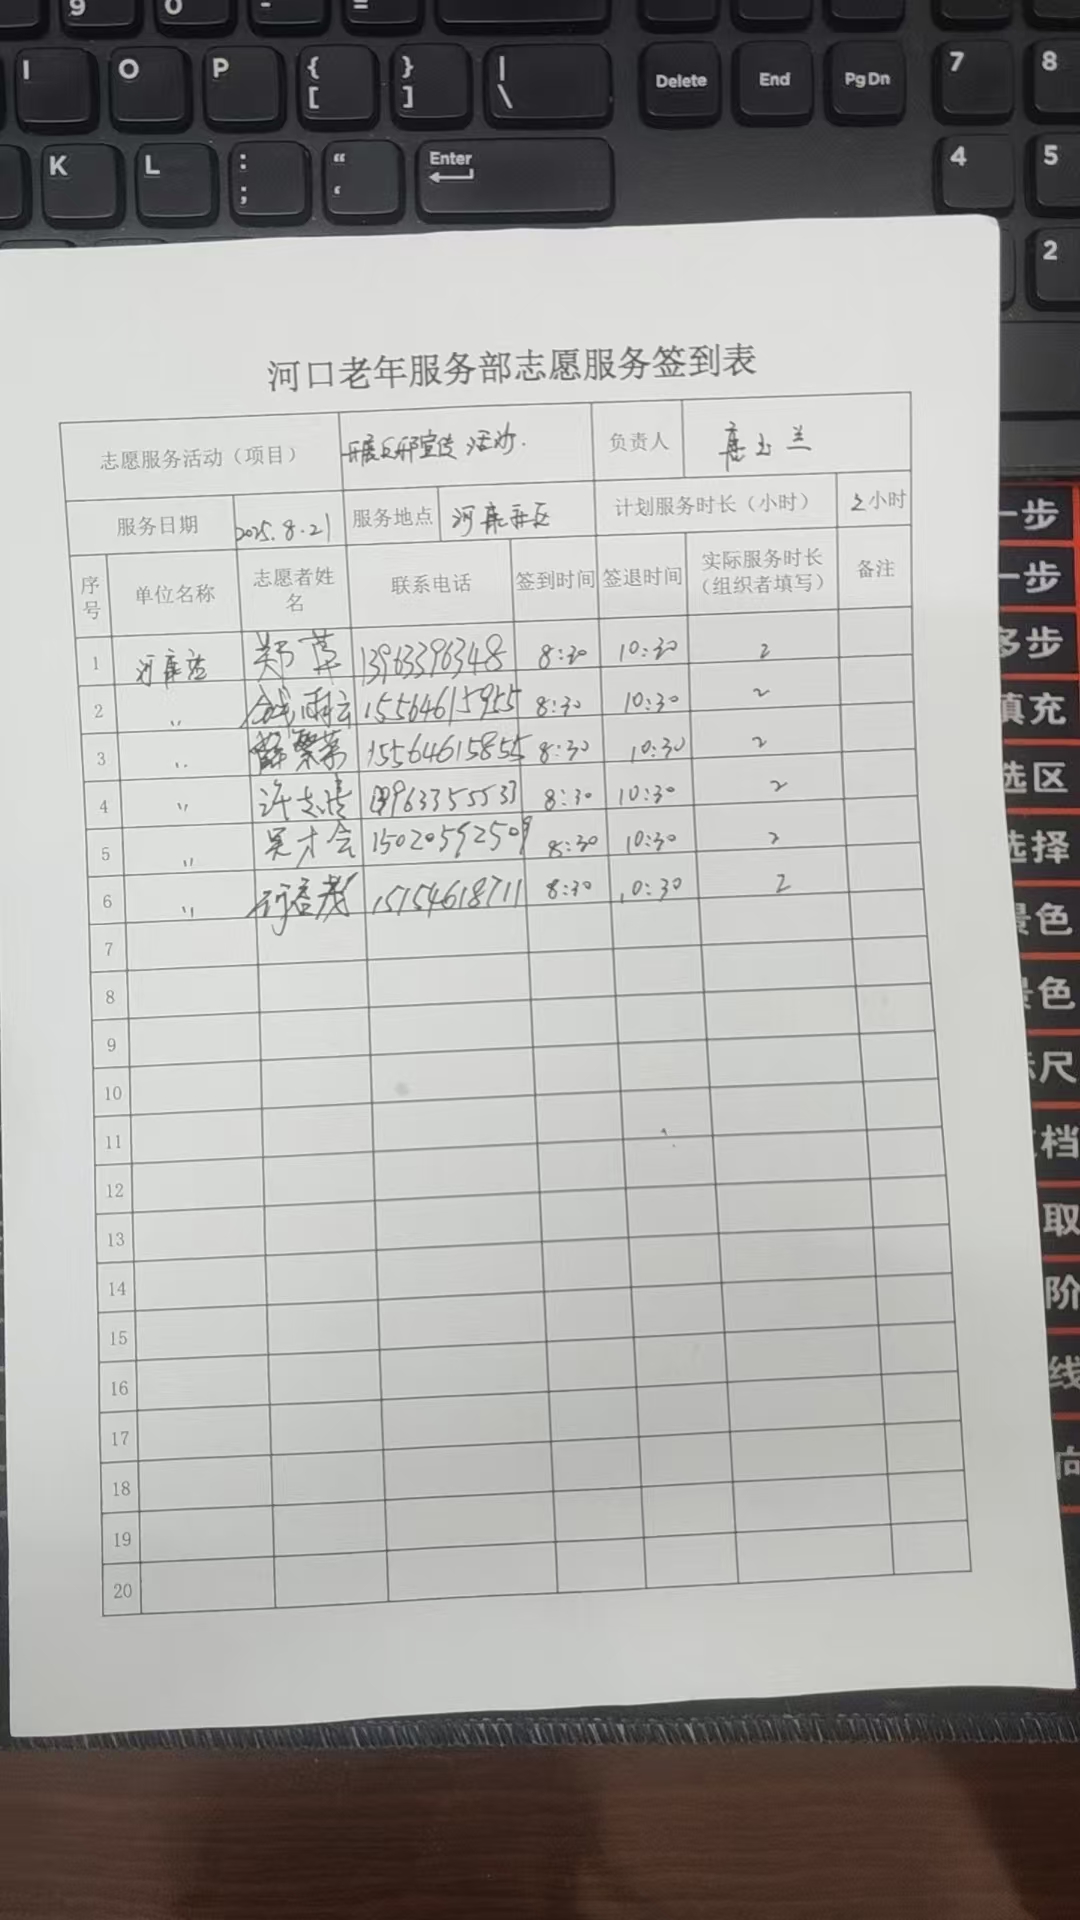 9 0 - =
I O P { [ } ] | \ Delete End Pg Dn 7 8
K L : ; “ ‘ Enter 4 5
2
河口老年服务部志愿服务签到表
志愿服务活动（项目） 开展反邪宣传活动. 负责人 唐玉兰
服务日期 2025.8.21 服务地点 河康社区 计划服务时长（小时） 2小时
序号 单位名称 志愿者姓名 联系电话 签到时间 签退时间 实际服务时长（组织者填写） 备注
1 河康站 郑萍 13963396348 8:30 10:30 2
2 〃 15564615955 8:30 10:30 2
3 〃 薛繁荣 15564615855 8:30 10:30 2
4 〃 许志 13963355533 8:30 10:30 2
5 〃 吴才会 15020592509 8:30 10:30 2
6 〃 15154618711 8:30 10:30 2
7
8
9
10
11
12
13
14
15
16
17
18
19
20
一步
一步
多步
填充
选区
选择
景色
景色
标尺
档
取
阶
线
向